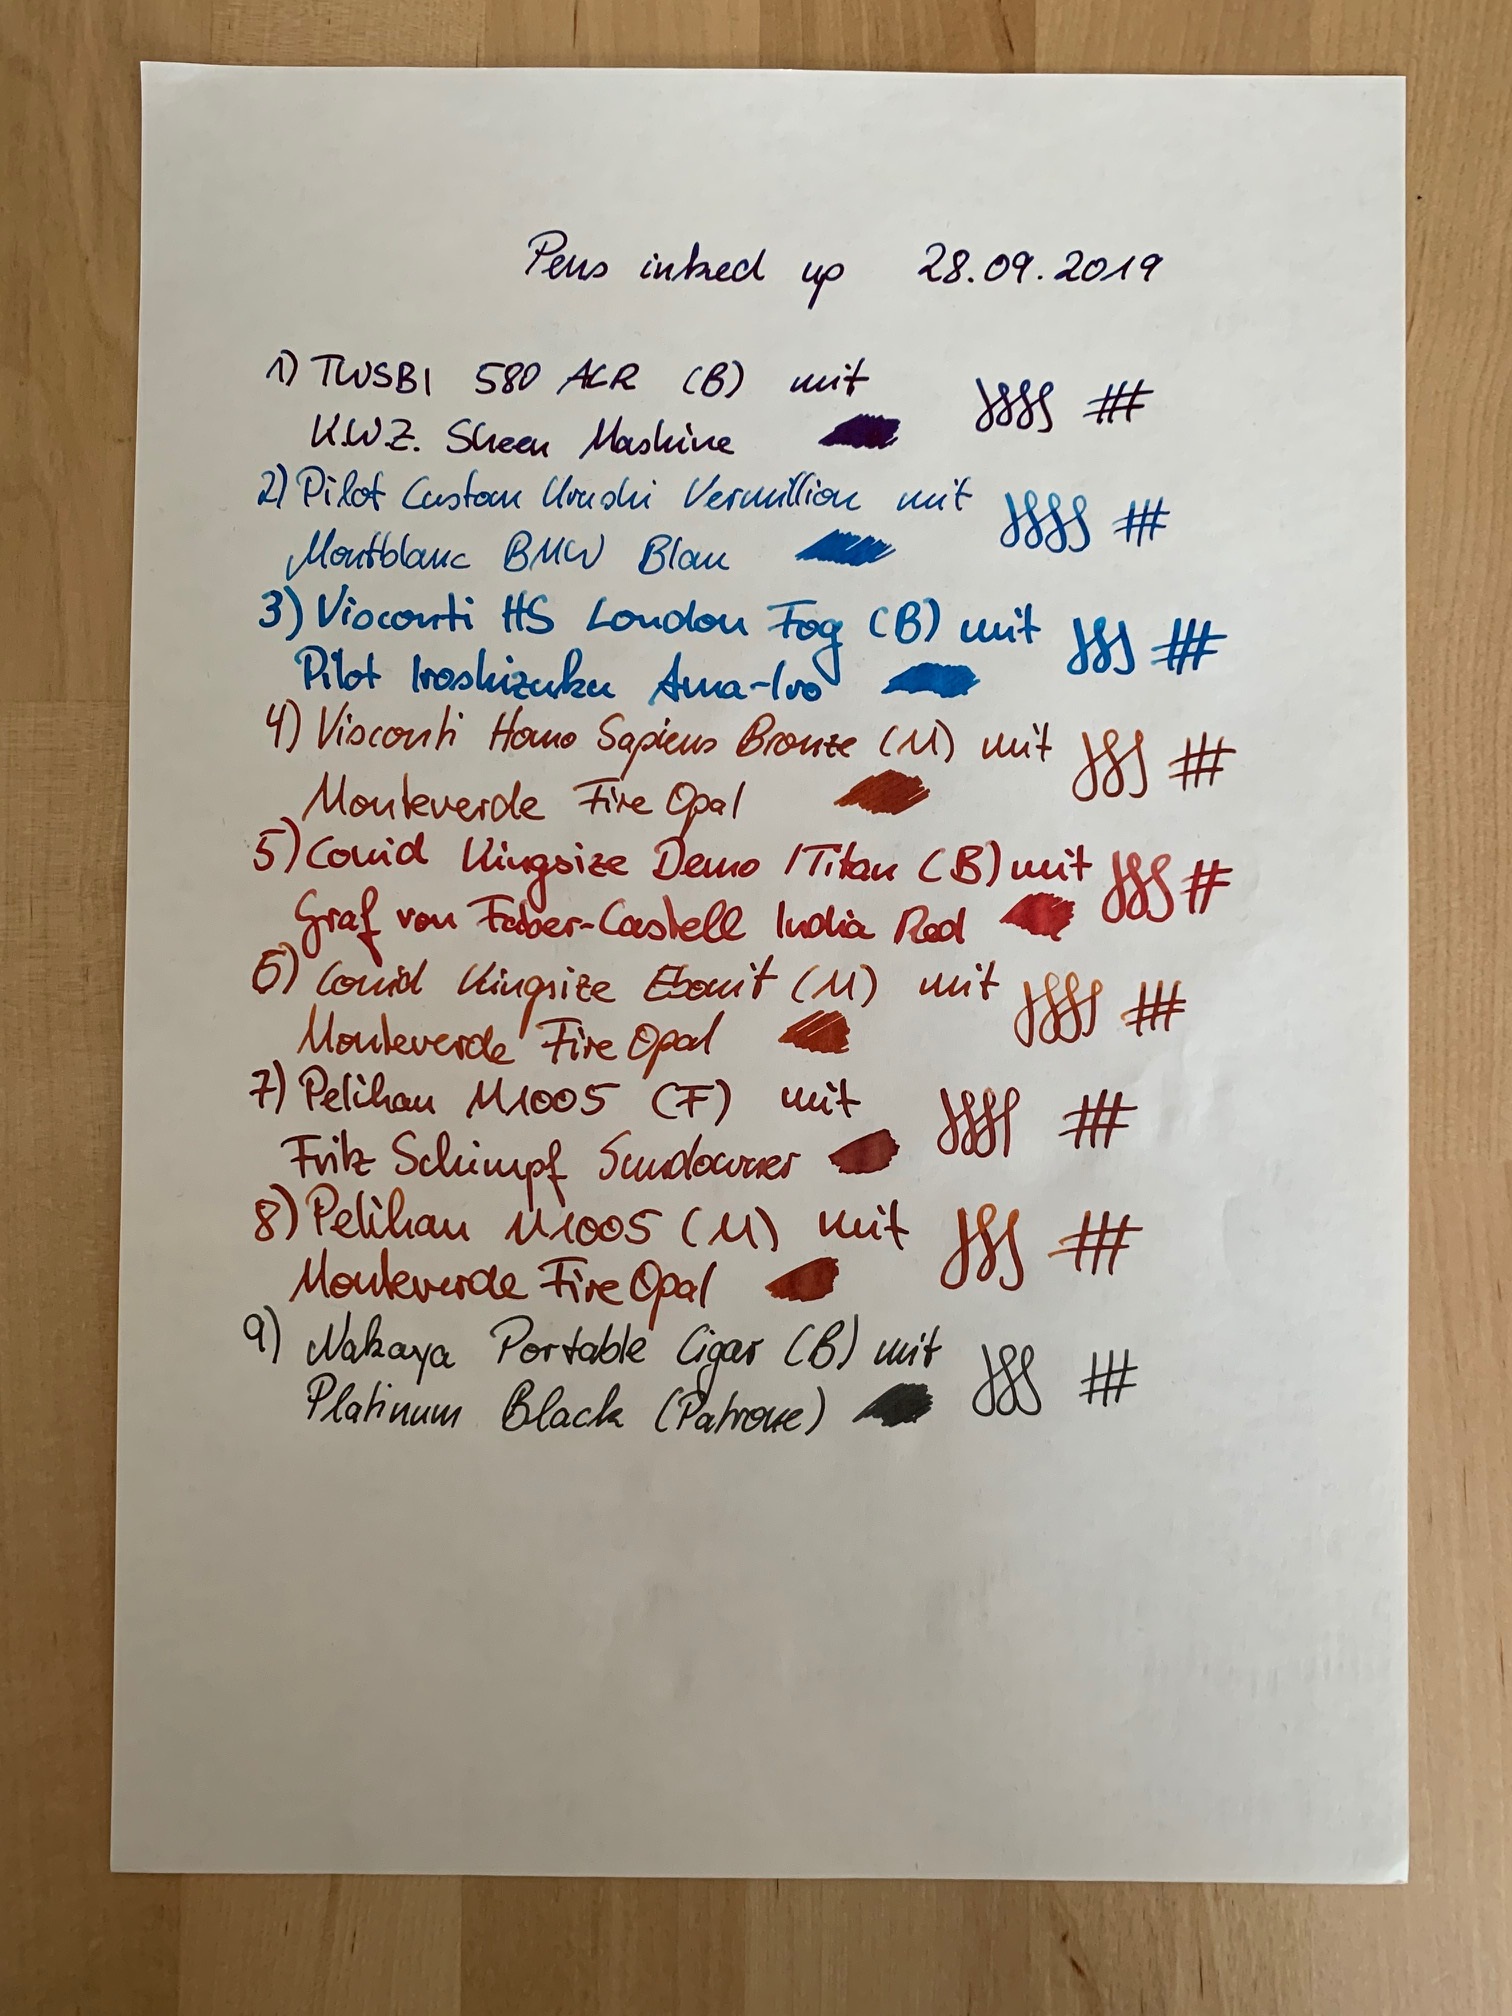 Pens inked up 28.09.2019
1) TWSBI 580 ALR (B) mit
KWZ Sheen Mashine
2) Pilot Custom Urushi Vermillion mit
Montblanc BMW Blau
3) Visconti HS London Fog (B) mit
Pilot Iroshizuku Ama-Iro
4) Visconti Homo Sapiens Bronze (M) mit
Monteverde Fire Opal
5) Conid Kingsize Demo Titan (B) mit
Graf von Faber-Castell India Red
6) Conid Kingsize Ebonit (M) mit
Monteverde Fire Opal
7) Pelikan M1005 (F) mit
Fritz Schimpf Sundowner
8) Pelikan M1005 (M) mit
Monteverde Fire Opal
9) Nakaya Portable Cigar (B) mit
Platinum Black (Patrone)